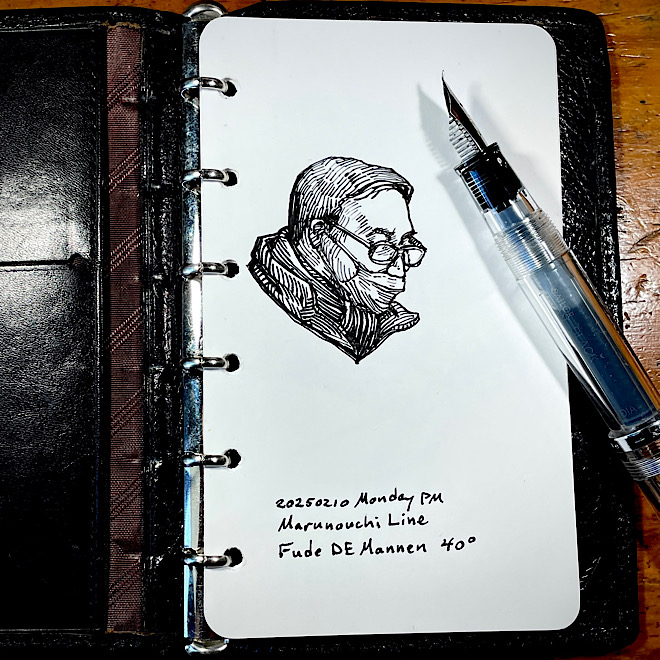 20250210 Monday PM
Marunouchi Line
Fude DE Mannen 40°